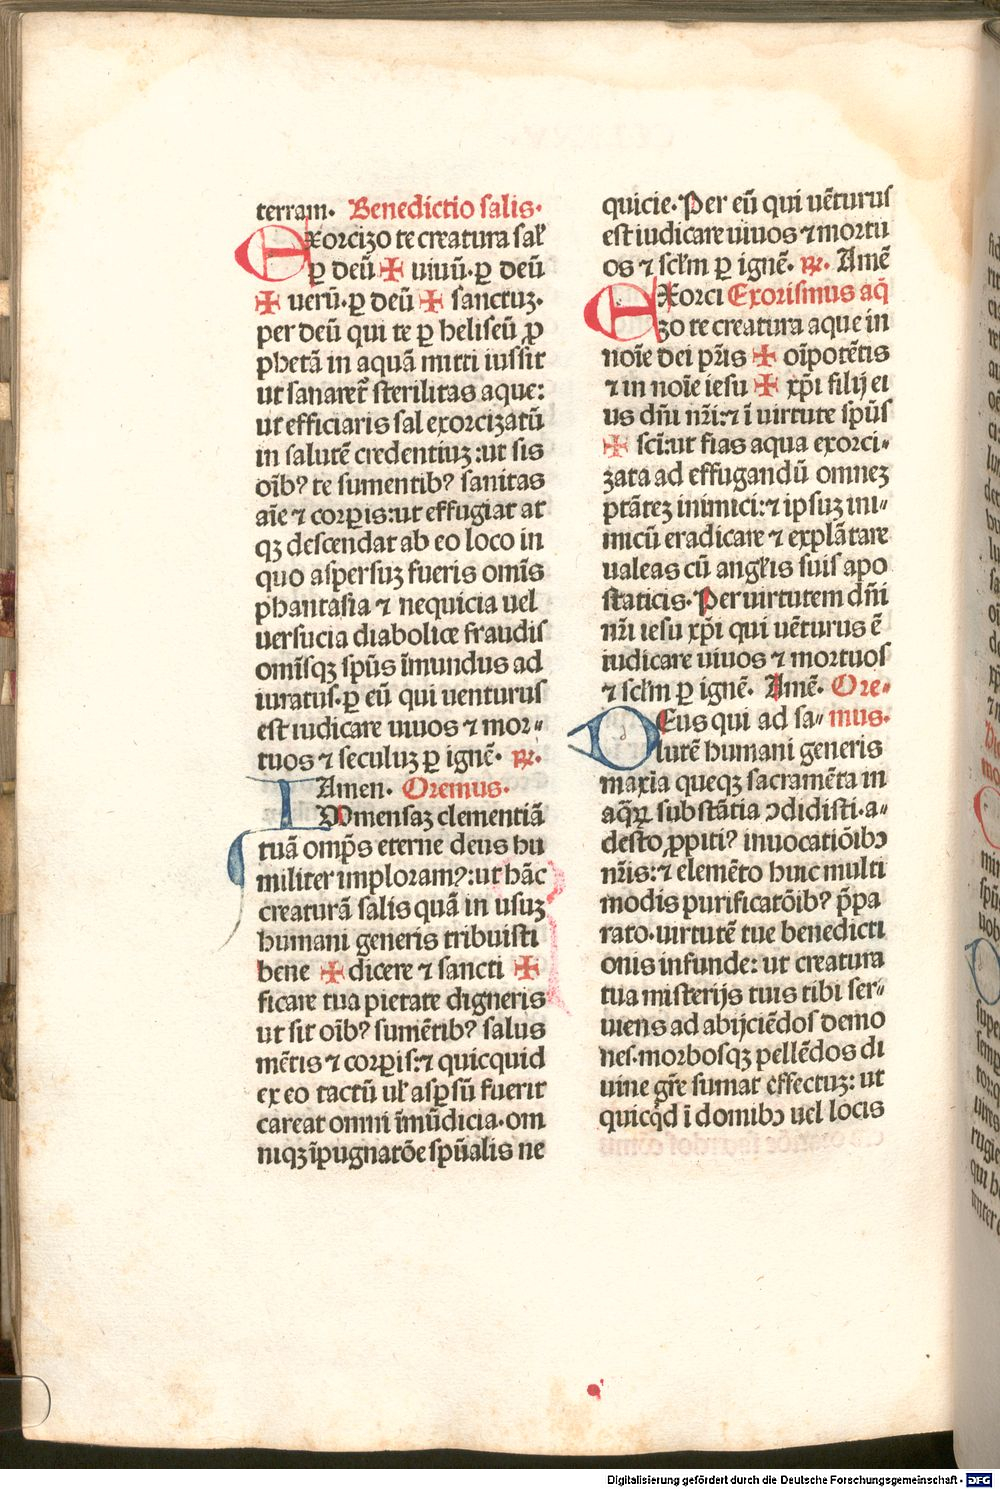 terram. Benedictio salis.
Exorcizo te creatura sal̕
ꝑ deū ✠ uiuū. ꝑ deū
✠ uerū. ꝑ deū ✠ sanctuꝫ.
per deū qui te ꝑ heliseū ꝓ
phetā in aquā mitti iussit
ut sanaret᷑ sterilitas aque:
ut efficiaris sal exorcizatū
in salutē credentiuꝫ: ut sis
oīb⁹ te sumentib⁹ sanitas
aīe ⁊ corꝑis: ut effugiat at
qꝫ descendat ab eo loco in
quo aspersuꝫ fueris omīs
phantasia ⁊ nequicia uel
uersucia diabolice fraudis
omīsqꝫ spūs īmundus ad
iuratus. ꝑ eū qui uenturus
est iudicare uiuos ⁊ mor⸗
tuos ⁊ seculuꝫ ꝑ ignē. ℟.
Amen. Oremus.
IMmensaꝫ clementiā
tuā omp̄s eterne deus hu
militer imploram⁹: ut hāc
creaturā salis quā in usuꝫ
humani generis tribuisti
bene ✠ dicere ⁊ sancti ✠
ficare tua pietate digneris
ut sit oīb⁹ sumētib⁹ salus
mētis ⁊ corꝑis: ⁊ quicquid
ex eo tactū ul̕ asꝑsū fuerit
careat omni īmūdicia. om
niqꝫ īpugnatōe spūalis ne
quicie. Per eū qui uēturus
est iudicare uiuos ⁊ mortu
os ⁊ scłm ꝑ ignē. ℟. Amē
EXorci Exorismus aq̄
zo te creatura aque in
noīe dei pr̄is ✠ oīpotētis
⁊ in noīe iesu ✠ xp̄i filij ei
us dn̄i nr̄i: ⁊ ī uirtute spūs
✠ sc̄i: ut fias aqua exorci⸗
zata ad effugandū omneꝫ
ptāteꝫ inimici: ⁊ ipsuꝫ ini⸗
micū eradicare ⁊ explātare
ualeas cū angłis suis apo
staticis. Per uirtutem dn̄i
nr̄i iesu xp̄i qui uēturus ē
iudicare uiuos ⁊ mortuos
⁊ scłm ꝑ ignē. Amē. Ore⸗
DEus qui ad sa⸗ mus.
lutē humani generis
maxīa queqꝫ sacramēta in
aqꝝ substātia ꝯdidisti. a⸗
desto ꝓpiti⁹ inuocatiōibꝯ
nr̄is: ⁊ elemēto huic multi
modis purificatōib⁹ p̄pa
rato. uirtutē tue benedicti
onis infunde: ut creatura
tua misterijs tuis tibi ser⸗
uiens ad abijciēdos demo
nes. morbosqꝫ pellēdos di
uine gr̄e sumat effectuꝫ: ut
quicq̇d ī domibꝯ uel locis
Digitalisierung gefördert durch die Deutsche Forschungsgemeinschaft - DFG